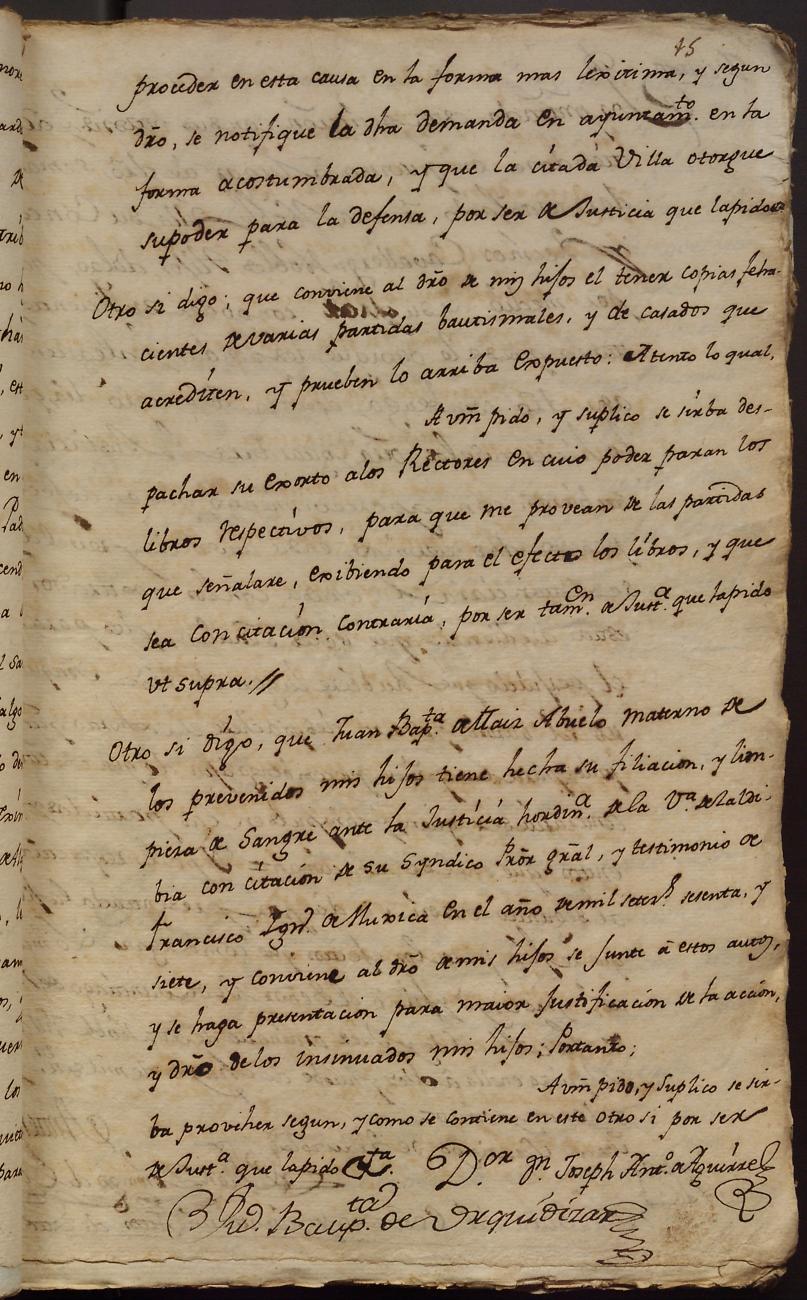 15
proceder en esta causa en la forma mas lexitima, y segun
dr̃o, se notifique la dha demanda en ayuntamto. en la
forma acostumbrada, y que la citada Villa otorgue
su poder para la defensa, por ser de Justicia que la pido
Otro si digo; que conviene al dr̃o de mis hijos el tener copias feha-
cientes de varias partidas bautismales, y de casados que
acrediten, y prueben lo arriba expuesto: Atento lo qual,
A vm̃ pido, y suplico se sirba des-
pachar su exorto a los Rectores en cuio poder paran los
libros respectivos, para que me provean de las partidas
que señalare, exibiendo para el efecto los libros, y que
sea con citación contraria, por ser tamen. de Justa. que la pido
Vt supra.//
Otro si digo, que Juan Bapta. de Abuelo materno de
los prevenidos mis hijos tiene hecha su filiacion, y lim-
pieza de Sangre ante la Justicia hordina. de la Va. de Valdi-
bia con citación de su Syndico Pror̃ gral, y testimonio de
Francisco Ign. de Muxica en el año de mil seters. sesenta, y
siete, y conviene al dr̃o de mis hijos se junte â estos autos,
y se haga presentacion para maior justificación de la acción,
y dr̃o de los insinuados mis hijos; Portanto;
A vm̃ pido, y suplico se sir-
ba proveher segun, y como se contiene en este otro si por ser
de Justa. que la pido Dor. Dn. Joseph Anto. de Aguirre
Baupta. de Urquidizar